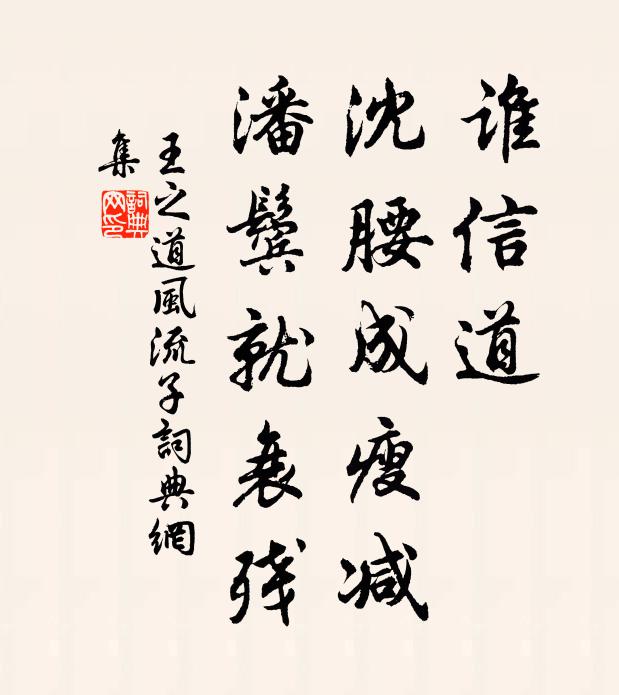 谁信道
沈腰成瘦减
潘鬓就衰残
王之道風流子詞典網
集
詞典網印